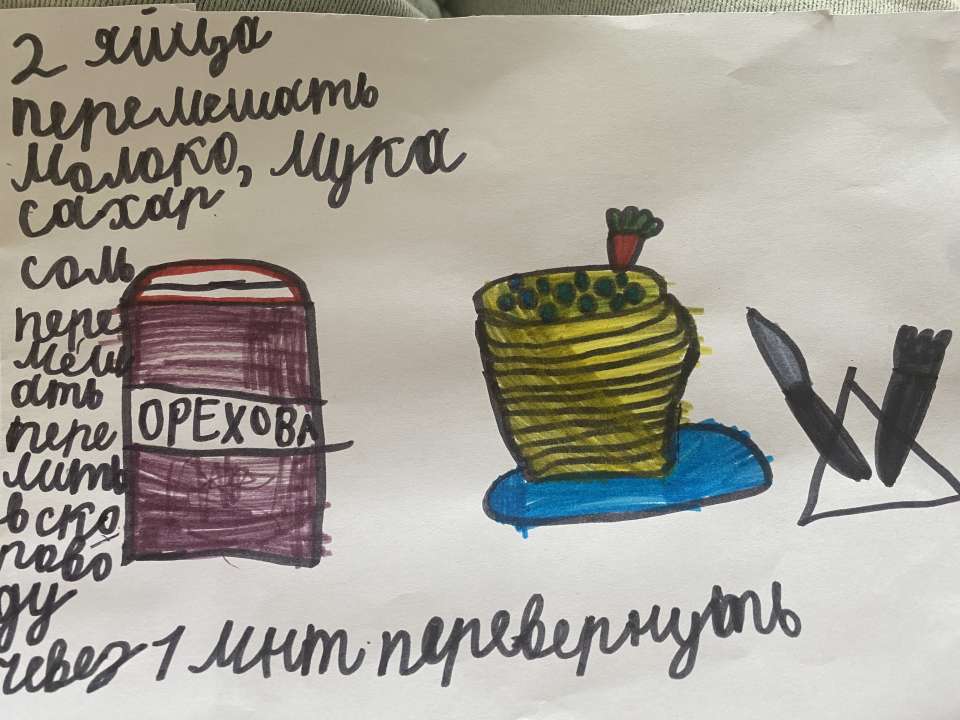 2 яйца
перемешать
молоко, мука
сахар
соль
пере
меш
ать
пере
лить
в ско
вово
ду
через 1 мнт. перевернуть
ОРЕХОВА